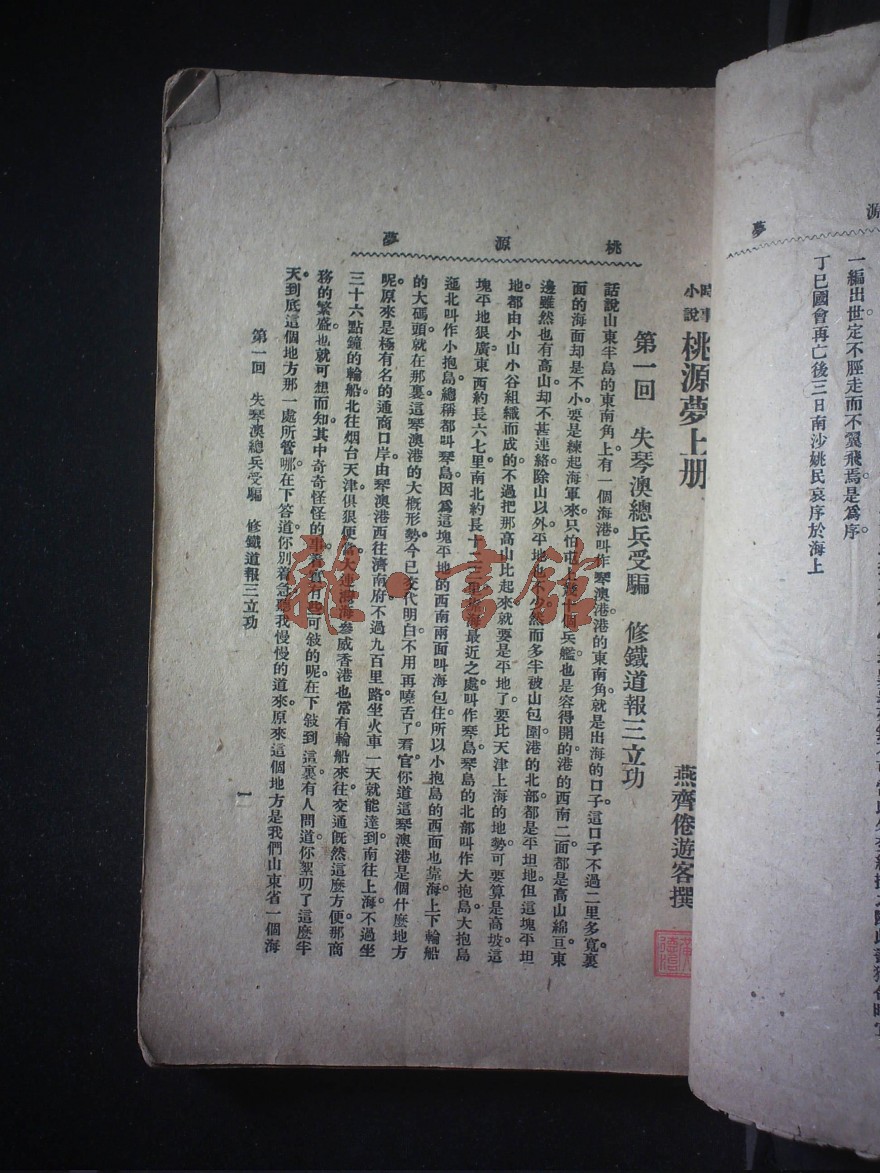 源　夢
一編出世定不脛走而不翼飛焉是爲序。
丁巳國會再亡後三日南沙姚民哀序於海上
桃源夢
時事小說 桃源夢上册
燕齊倦遊客撰
第一回　失琴澳總兵受騙　修鐵道報三立功
話說山東半島的東南角上。有一個海港叫作琴澳港。港的東南角就是出海的口子。這口子不過二里多寬。裏
面的海面却是不小。要是練起海軍來。只怕屯上幾十個兵艦也是容得開的。港的西南二面都是高山綿亘。東
邊雖然也有高山。却不甚連絡。除山以外。平地也不少。然而多半被山包圍。港的北部都是平坦地。但這塊平坦
地都由小山小谷組織而成的。不過把那高山比起來就要是平地了。要比天津上海的地勢。可要算是高坡。這
塊平地狠廣。東西約長六七里。南北約長十二三里。靠海最近之處叫作琴島。琴島的北部叫作大抱島。大抱島
迤北叫作小抱島。總稱都叫琴島。因爲這塊平地的西南兩面叫海包住。所以小抱島的西面也靠海。上下輪船
的大碼頭就在那裏。這琴澳港的大槪形勢今已交代明白。不用再嘵舌了。看官你道這琴澳港是個什麼地方
呢。原來是極有名的通商口岸。由琴澳港西往濟南府。不過九百里路。坐火車一天就能達到。南往上海。不過坐
三十六點鐘的輪船。北往烟台天津。俱狠便當。大連灣海參威香港也常有輪船來往。交通旣然這麼方便。那商
務的繁盛。也就可想而知。其中奇奇怪怪的事。着實有些可敍的呢。在下敍到這裏。有人問道。你絮叨了這麼半
天。到底這個地方那一處所管哪。在下答道。你別着急。聽我慢慢的道來。原來這個地方是我們山東省一個海
第一回　失琴澳總兵受騙　修鐵道報三立功
一
龍·書館